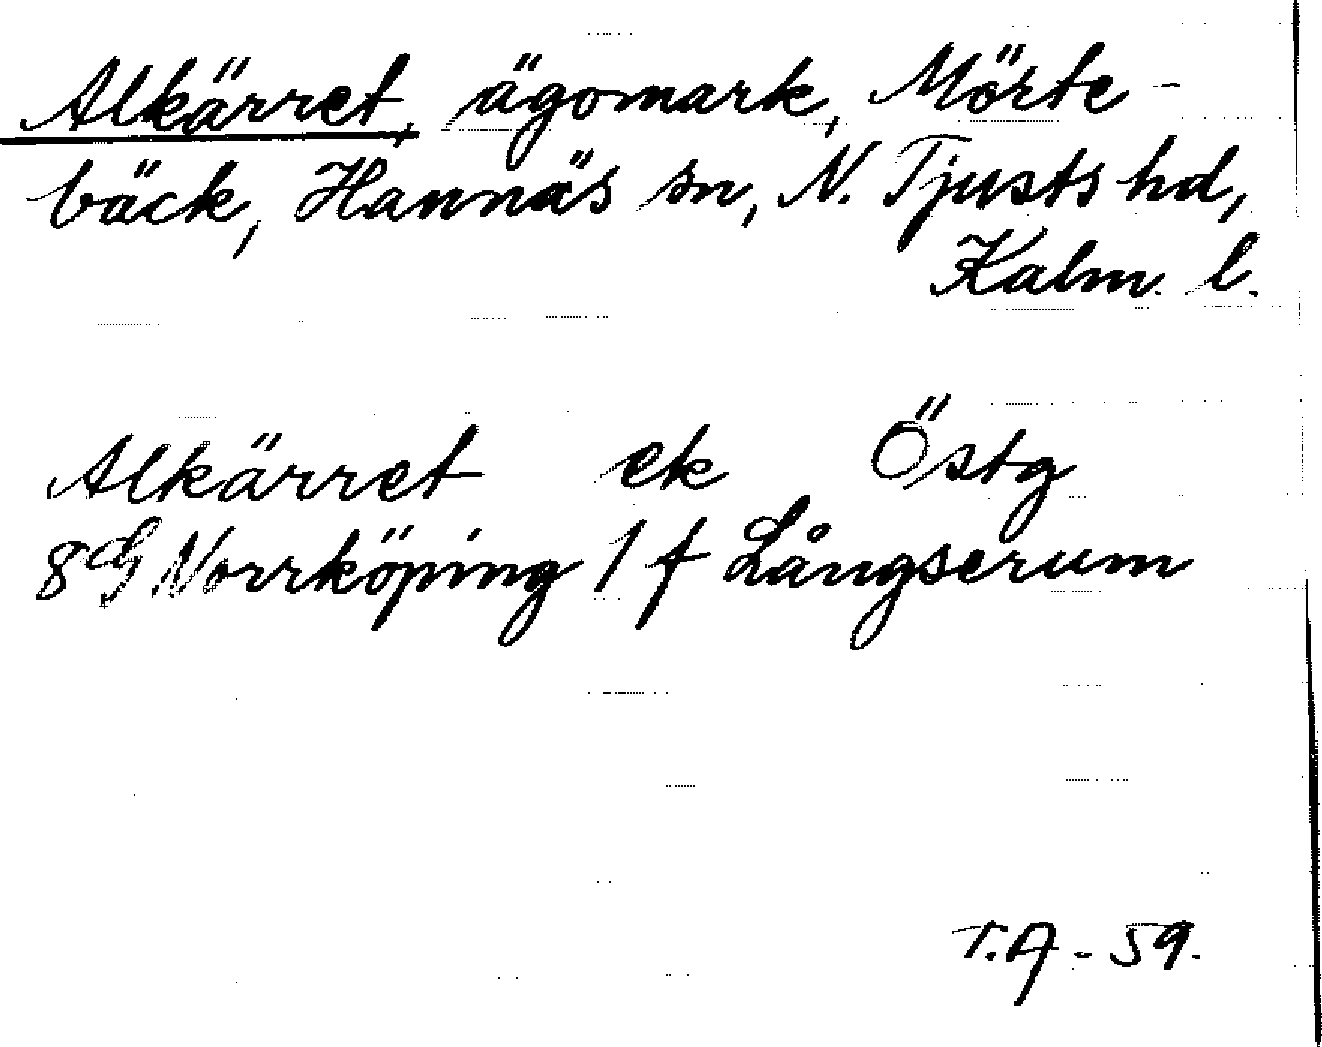 Alkärret, ägomark, Mörte-
bäck, Hannäs sn, N. Tjusts hd,
Kalm. l.
Alkärret ek Östg
8G Norrköping 1 f Långserum
T.A - 59.